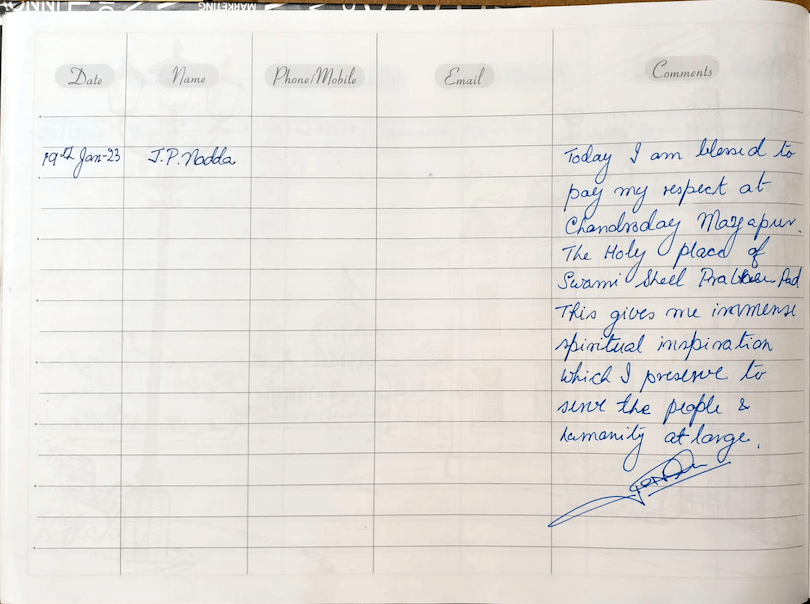 MARKETING
Date Name Phone/Mobile Email Comments
19th Jan-23 J.P. Nadda
Today I am blessed to
pay my respect at
Chandroday Mayapur.
The Holy place of
Swami Pad
This gives me immense
spiritual inspiration
which I preserve to
serve the people &
humanity at large.